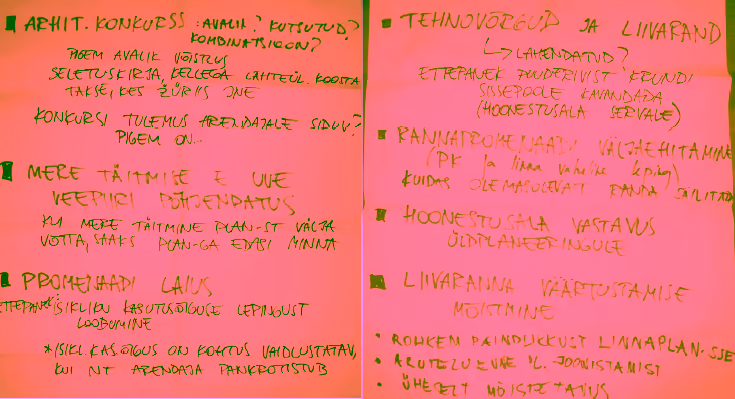 ARHIT. KONKURSS : AVALIK? KUTSUTUD?
KOMBINATSIOON?
PIGEM AVALIK VÕISTLUS
SELETUSKIRJA, KELLEGA LÄHTEÜL. KOOSTA-
TAKSE, KES ŽÜRIIS JNE
KONKURSI TULEMUS ARENDAJALE SIDUV?
PIGEM ON...
MERE TÄITMISE E UUE
VEEPIIRI PÕHJENDATUS
KUI MERE TÄITMINE PLAN-ST VÄLJA
VÕTTA, SAAKS PLAN-GA EDASI MINNA
PROMENAADI LAIUS
ETTEPANEK: ISIKLIKU KASUTUSÕIGUSE LEPINGUST
LOOBUMINE
*ISIKL. KAS. ÕIGUS ON KOHTUS VAIDLUSTATAV,
KUI NT ARENDAJA PANKROTISTUB
TEHNOVÕRGUD JA LIIVARAND
LAHENDATUD?
ETTEPANEK KRUNDI
SISSEPOOLE KAVANDADA
(HOONESTUSALA SERVALE)
RANNAPROMENAADI VÄLJAEHITAMINE
(PK ja linna vaheline leping)
KUIDAS OLEMASOLEVAT RANDA SÄILITADA
HOONESTUSALA VASTAVUS
ÜLDPLANEERINGULE
LIIVARANNA VÄÄRTUSTAMISE
MÕISTMINE
ROHKEM PAINDLIKKUST LINNAPLAN.-SSE
ARUTELU ENNE JOONISTAMIST
ÜHESELT MÕISTETAVUS